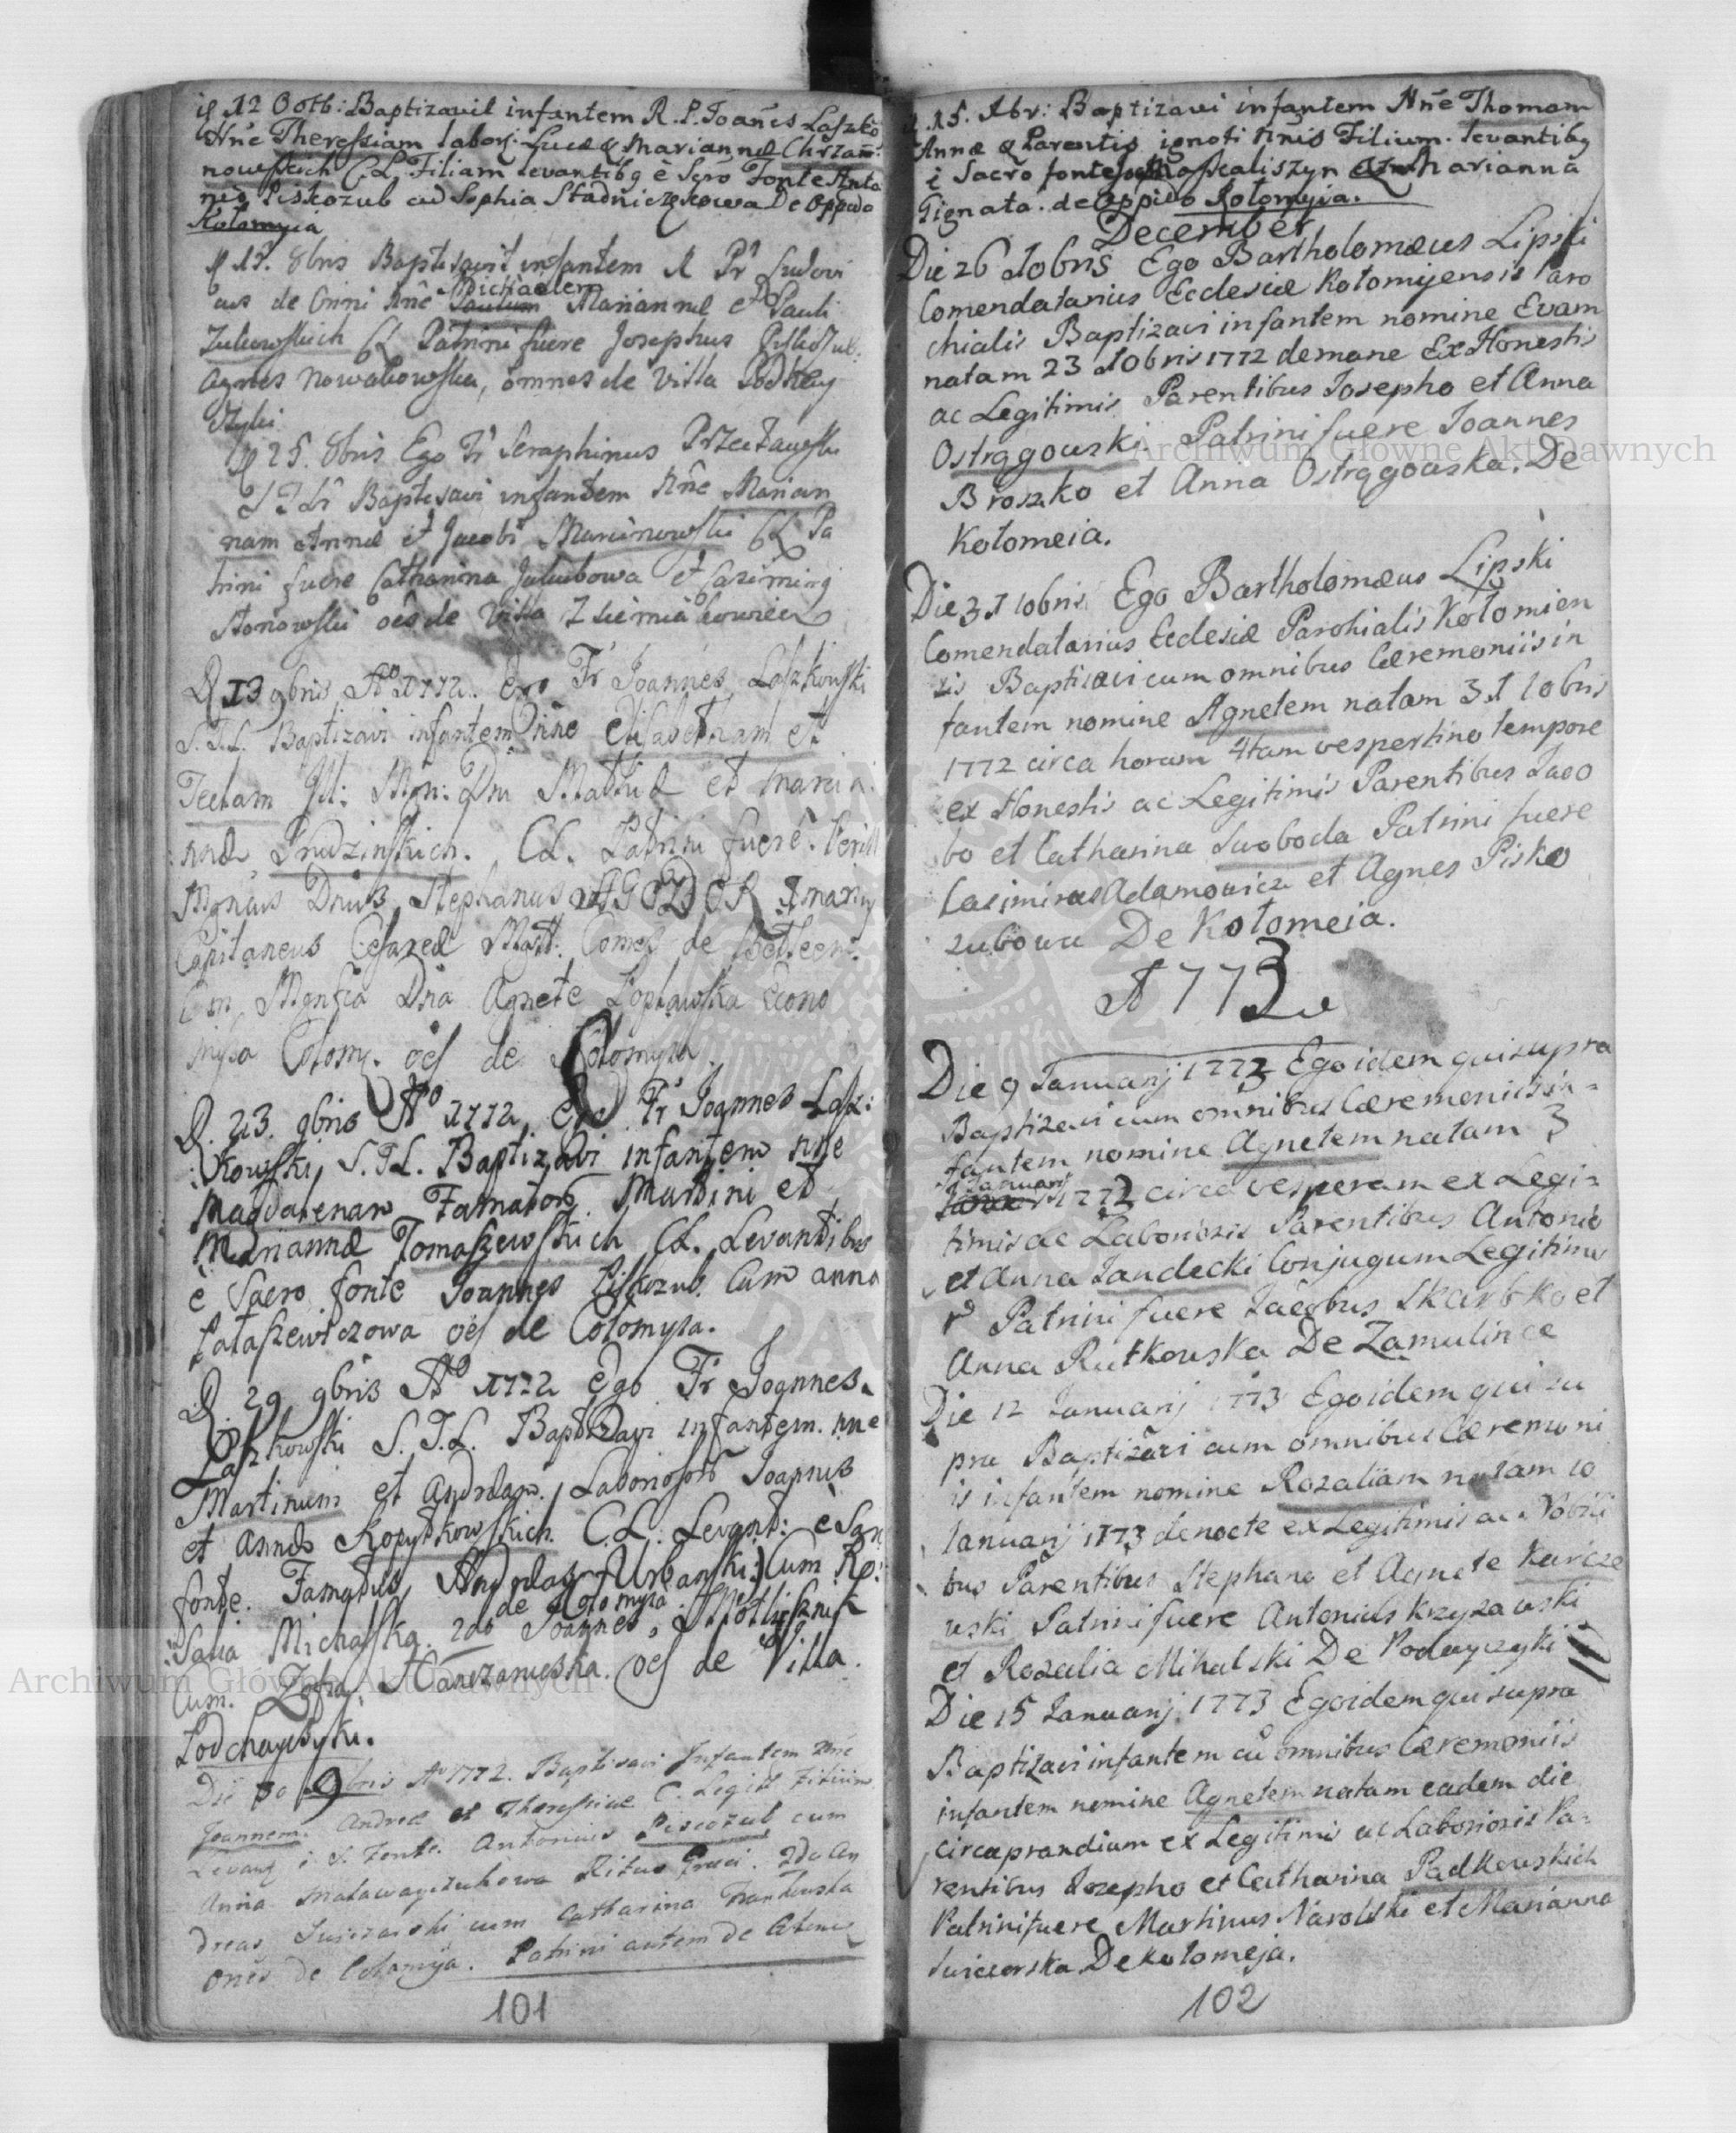 12 Octb: Baptizavit infantem R. P. Joanes Laszko
Nne Theressiam labor: Lucæ & Mariannæ Chrzan:
nowskich C. L. Filiam levantibg è Sero Fonte Anto
nig Piskozub cu Sophia Stadniczękowa De Oppido
Kołomyia
17. 8bris Baptisavit infantem R Pr Ludovi
cus de Nne Michaelem Mariannæ et Pauli
Zukowskich CL Patrini fuere Josephus Piskozub:
Agnes Nowakowska, omnes de Villa Podhay
czyki
25. 8bris Ego Fr Seraphinus
Baptisavi infantem Nne Marian
nam Annæ et Jacobi Marcinowski CL Pa
trini fuere Catharina Jakubowa et Casimirg
oes de Villa
D 13 9bris Ao 1772. Ego Fr Joannes Laszkowski
S.T.L. Baptizavi infantem nne Elisabetham et
Teclam Ill: Mgn: Dni et Marian
næ Grudzinskich. CL. Patrini fuere.
Mgncus Dnus Stephanus
Capitaneus Cesareæ Comes de
Mgnfca Dna Agnete Popławska Econo
Colomy. oes de Colomyia.
D. 23. 9bris Ao 1772 Ego Fr Joannes Lasz:
:kowski S.T.L. Baptizavi infantem nne
Magdalenam Famator. Martini et
Mariannæ Tomaszewskich CL. Levantibus
è Sacro fonte Joannes Piskozub Cum anna
Łataszewiczowa oes de Cołomyia.
D. 29 9bris Ao 1772 Ego Fr Joannes
Laszkowski S.T.L. Baptizavi infantem. nne
Martinum et Andream, Laborioso Joannis
et Annæ Kopytkowskich C.L. Levant: è San
fonte. Famatus Andreas Urbanski Cum Ro:
de Kołomyia
:salia Michalska. 2do Joannes
Cum. Zofia oes de Villa.
Podhayczyki.
Die 30 9bris Ao 1772. Baptisavi Infantem Nne
Joannem. Andreæ et Theressiae C. Legit Filium
Levang è S. Fonte. Antonius Piscozub cum
Anna Ritus Græci. 2do An
dreas cum Catharina
Ones de Cołomyia. Patrini autem de
101
15. Xbr: Baptizavi infantem Nne Thomam
Annæ & Parentis ignoti Nnis Filium. levantibg
è Sacro fonte Marianna
Gignata. de Oppido Kołomyia.
December
Die 26 10bris Ego Bartholomæus Lipski
Comendatarius Ecclesiæ Kołomyensis Paro
chialis Baptizavi infantem nomine Evam
natam 23 10bris 1772 de mane Ex Honestis
ac Legitimis Parentibus Josepho et Anna
Ostrągowski Patrini fuere Joannes
Broszko et Anna Ostrągowska. De
Kołomeia.
Die 31 10bris Ego Bartholomæus Lipski
Comendatarius Ecclesiæ Parohialis Kołomien
sis Baptizavi cum omnibus Cæremoniis in
fantem nomine Agnetem natam 31 10bris
1772 circa horam 4tam vespertino tempore
ex Honestis ac Legitimis Parentibus Jaco
bo et Catharina Swoboda Patrini fuere
Casimirus Adamowicz et Agnes Pisko
zubowa De Kołomeia.
A 1773
Die 9 Januarij 1773 Ego idem qui supra
Baptizavi cum omnibus Cæremoniis in=
fantem nomine Agnetem natam 3
Januarij
1773 circa vesperam ex Legi=
timis ac Laboriosis Parentibus Antonio
et Anna Jandecki Conjugum Legitimo
r Patrini fuere Jacobus Skarbko et
Anna Rutkowska De Zamulince
Die 12 Januarij 1773 Ego idem qui su
pra Baptizavi cum omnibus Cæremoni
is infantem nomine Rozaliam natam 10
Januarij 1773 de nocte ex Legitimis ac Nobili
bus Parentibus Stephano et Agnete Karcze
wski Patrini fuere Antonius Krzyżawski
et Rozalia Mihalski De Podayczyki
Die 15 Januarij 1773 Ego idem qui supra
Baptizavi infantem cu omnibus Cæremoniis
infantem nomine Agnetem natam eadem die
circa prandium ex Legitimis ac Laboriosis Pa=
rentibus Jozepho et Catharina Padkowskich
Patrini fuere Martinus Narolski et Marianna
De Kołomeja.
102
Archiwum Główne Akt Dawnych
Archiwum Główne Akt Dawnych